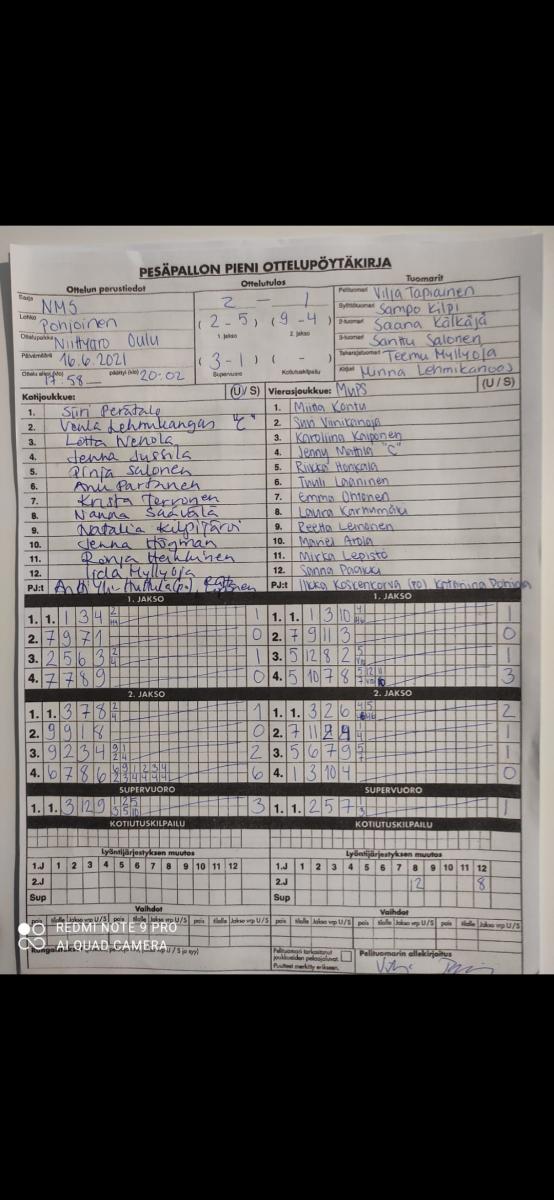 PESÄPALLON PIENI OTTELUPÖYTÄKIRJA
Ottelun perustiedot
Sarja NMS
Lohko Pohjoinen
Ottelupaikka Niittyaro Oulu
Päivämäärä 16.6.2021
Ottelu alkoi (klo) 17:58 päättyi (klo) 20:02
Ottelutulos
2 - 1
( 2 - 5 ) ( 9 - 4 )
1. jakso 2. jakso
( 3 - 1 ) ( - )
Supervuoro Kotiutuskilpailu
Tuomarit
Pelituomari Vilja Tapiainen
Syöttötuomari Sampo Kilpi
2-tuomari Saana Kälkäjä
3-tuomari Santtu Salonen
Takarajatuomari Teemu Myllyoja
Kirjuri Minna Lehmikangas
Kotijoukkue: (U / S)
1. Siiri Perätalo
2. Venla Lehmikangas "C"
3. Lotta Nenola
4. Jenna Jussila
5. Pinja Salonen
6. Anu Partanen
7. Krista Tervonen
8. Nanna Saavala
9. Natalia Kilpijärvi
10. Jenna Högman
11. Ronja Heikkinen
12. Iida Myllyoja
PJ:t
Vierasjoukkue: MuPS (U / S)
1. Miina Kontu
2. Suvi Viinikanoja
3. Karoliina Kaiponen
4. Jenny Mattila "C"
5. Riikka Honkala
6. Tuuli Laaninen
7. Emma Ohtonen
8. Laura Karhumäki
9. Reetta Leinonen
10. Manei Arola
11. Mirka Lepistö
12. Sanna Paakki
PJ:t Ilkka Koskenkorva (PJ) Katariina
1. JAKSO 1. JAKSO
1. 1. 1 3 4 1
2. 7 9 7 1 0
3. 2 5 6 3 1
4. 7 7 8 9 0
1. 1. 1 3 10 1
2. 7 9 11 3 0
3. 5 12 8 2 1
4. 5 10 7 8 3
2. JAKSO 2. JAKSO
1. 1. 3 7 8 1
2. 9 9 1 8 0
3. 9 2 3 4 2
4. 6 7 8 6 6
1. 1. 3 2 6 2
2. 7 11 1
3. 5 6 7 9 1
4. 1 3 10 4 0
SUPERVUORO SUPERVUORO
1. 1. 3 12 9 3
1. 1. 2 5 7 1
KOTIUTUSKILPAILU KOTIUTUSKILPAILU
Lyöntijärjestyksen muutos Lyöntijärjestyksen muutos
1.J 1 2 3 4 5 6 7 8 9 10 11 12
2.J
Sup
1.J 1 2 3 4 5 6 7 8 9 10 11 12
2.J 12 8
Sup
Vaihdot Vaihdot
pois tilalle Jakso vrp U / S pois tilalle Jakso vrp U / S pois tilalle Jakso vrp U / S pois tilalle Jakso vrp U / S
REDMI NOTE 9 PRO
AI QUAD CAMERA
Pelituomari tarkastanut
joukkueiden pelaajaluvat.
Puutteet merkitty erikseen.
Pelituomarin allekirjoitus